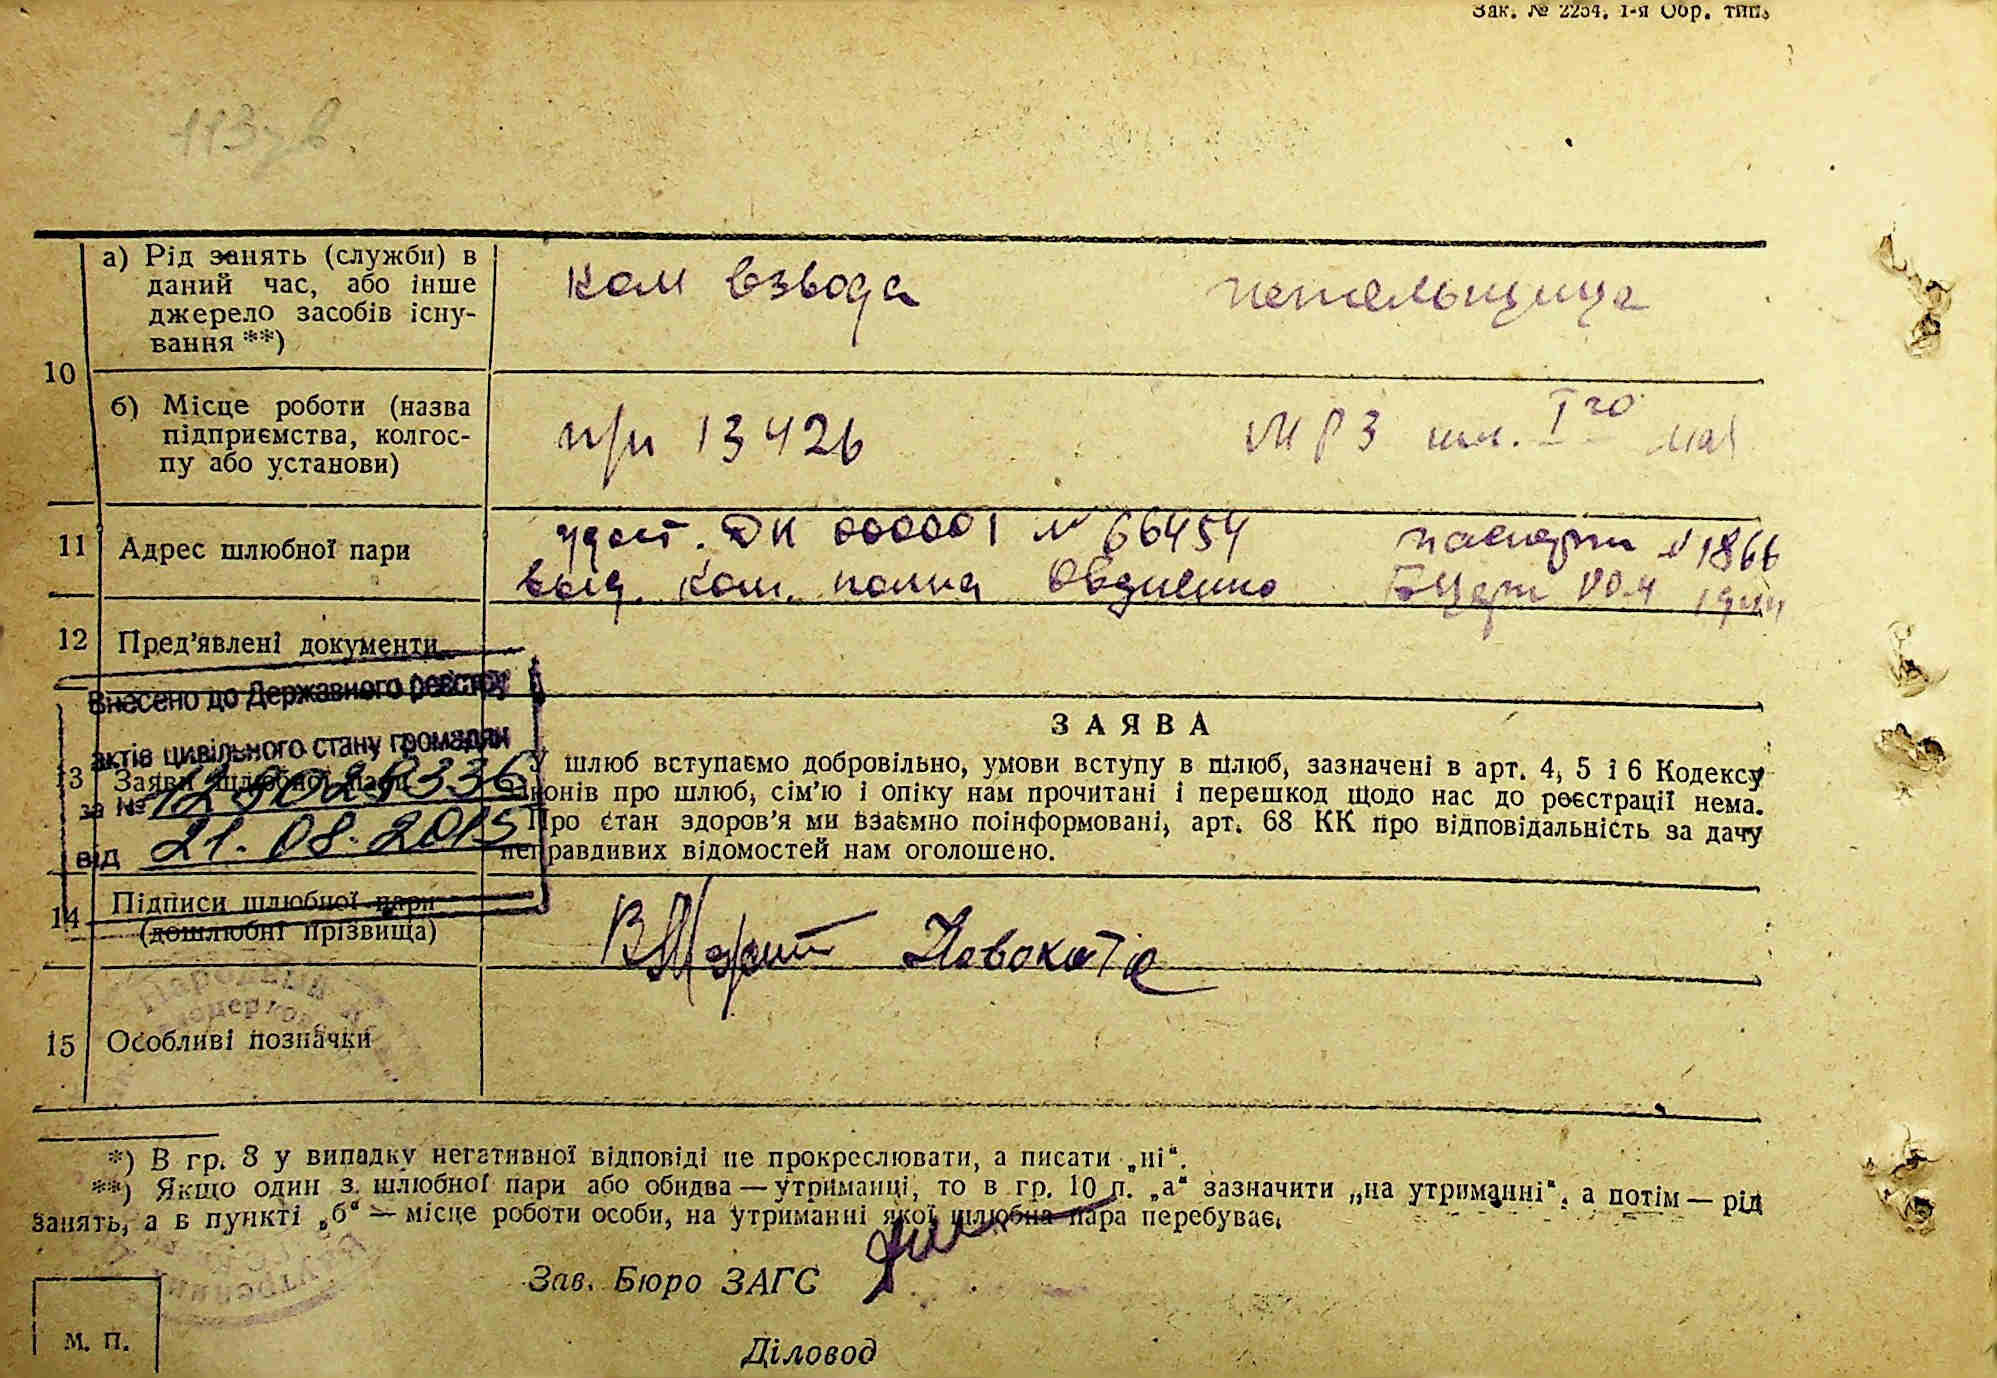 Зак. № 2254. 1-я Обр. тип.
10
а) Рід занять (служби) в
даний час, або інше
джерело засобів існу-
вання **)
ком взвода
б) Місце роботи (назва
підприємства, колгос-
пу або установи)
п/п 13426
МРЗ им. I го мая
11 Адрес шлюбної пари
удост. ДК 000001 № 66454
паспорт № 1866
выд. ком. полка Овдиенко
12 Пред'явлені документи
Внесено до Державного реєстру
актів цивільного стану громадян
за №
від 21.08.2015
13 Заява шлюбної пари
ЗАЯВА
У шлюб вступаємо добровільно, умови вступу в шлюб, зазначені в арт. 4, 5 і 6 Кодексу
законів про шлюб, сім'ю і опіку нам прочитані і перешкод щодо нас до реєстрації нема.
Про стан здоров'я ми взаємно поінформовані, арт. 68 КК про відповідальність за дачу
неправдивих відомостей нам оголошено.
14 Підписи шлюбної пари
(дошлюбні прізвища)
15 Особливі позначки
*) В гр. 8 у випадку негативної відповіді не прокреслювати, а писати „ні“.
**) Якщо один з шлюбної пари або обидва — утриманці, то в гр. 10 п. „а“ зазначити „на утриманні“, а потім — рід
занять, а в пункті „б“ — місце роботи особи, на утриманні якої шлюбна пара перебуває.
Зав. Бюро ЗАГС
Діловод
М. П.